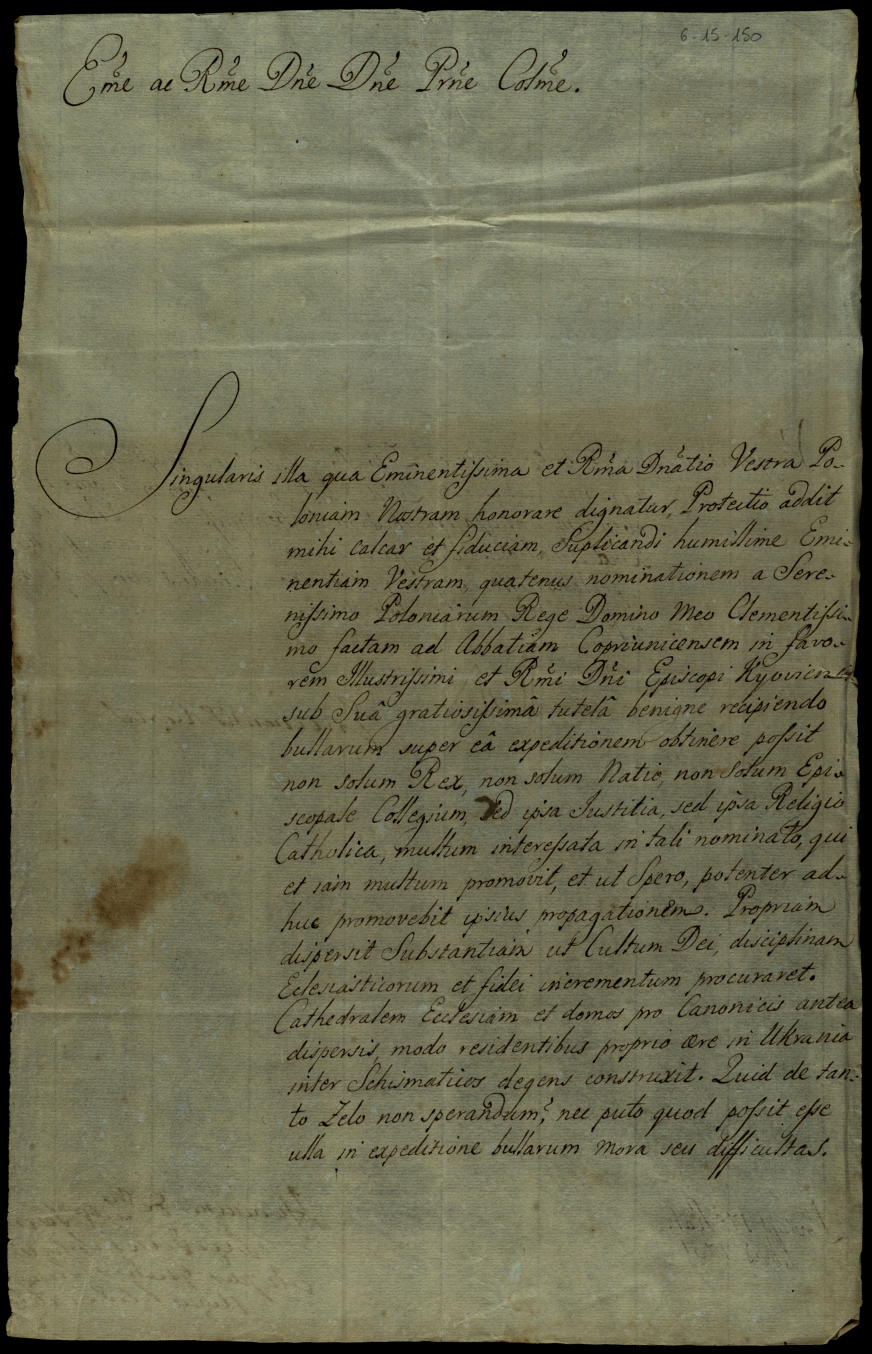 6-15-150
Em̃e ac Rm̃e Dñe Dñe Prñe Colm̃e.
Singularis illa qua Eminentissima et Rm̃a Dñatio Vestra Po-
loniam Nostram honorare dignatur, Protectio addit
mihi calcar et fiduciam, Suplicandi humillime Emi-
nentiam Vestram, quatenus nominationem a Sere-
nissimo Poloniarum Rege Domino Meo Clementissi-
mo factam ad Abbatiam Copriunicensem in favo-
rem Illustrissimi et Rm̃i Dñi Episcopi Kyoviensis
sub Suâ gratiosissimâ tutelâ benigne recipiendo
bullarum super eâ expeditionem obtinere possit
non solum Rex, non solum Natio, non Solum Epi-
scopale Collegium, sed ipsa Justitia, sed ipsa Religio
Catholica, multum interessata in tali nominato, qui
et iam multum promovit, et ut Spero, potenter ad-
huc promovebit ipsius propagationem. Propriam
dispersit Substantiam ut Cultum Dei, disciplinam
Eclesiasticorum et fidei incrementum procuraret.
Cathedralem Ecclesiam et domos pro Canonicis antea
dispersis, modo residentibus proprio ære in Ukrania
inter Schismaticos degens construxit. Quid de tan-
to Zelo non sperandum? nec puto quod possit esse
ulla in expeditione bullarum mora seu difficultas.